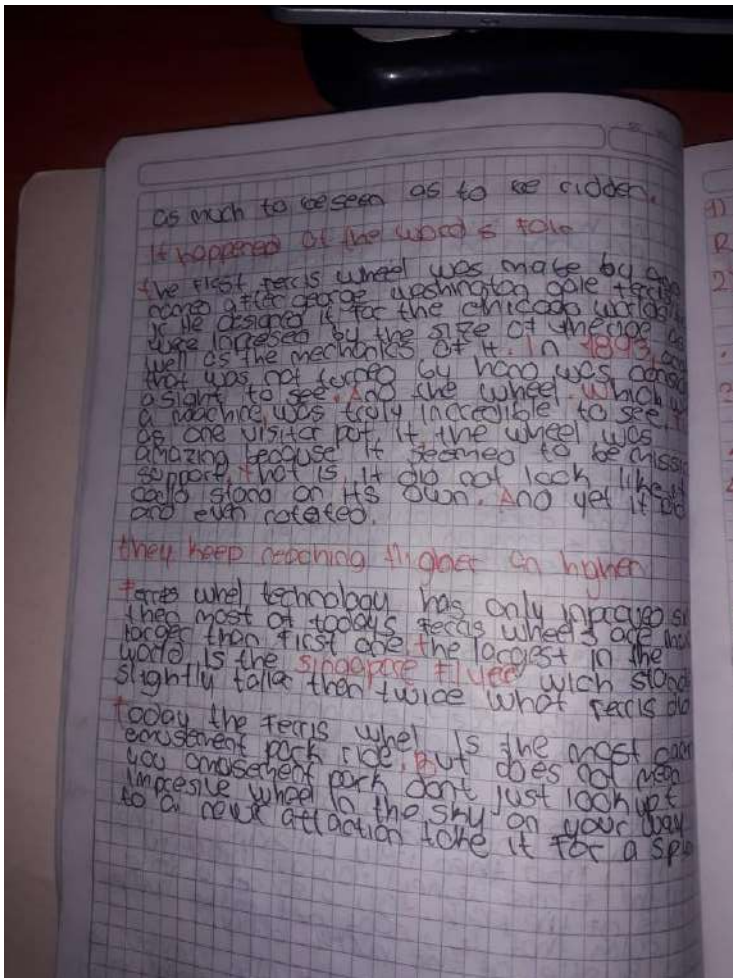 as much to be seen as to be ridden.
It happened at the word s fair
the first ferris wheel was made by
named after george washington gale ferris
jr He designed it for the chicago world
were impresed by the size of the ride as
well as the mechanics of it. In 1893,
that was not turned by hand was
a sight to see. And the wheel. Which w
a machine, was truly incredible to see.
as one visitor put, it, the wheel was
amazing because it seemed to be missi
support, that is, it did not look like it
could stand on its own. And yet it did
and even rotated.
they keep reaching higher an higher
ferres whel technology has only inproved
then most of todays ferris wheels are
larger than first one. the largest in the
world is the singapore flyer wich stand
slightly taller then twice what ferris did
today the ferris whel is the most
emusement park ride. But does not mean
you amusement park dont just look up t
impresive wheel in the sky on your way
to a new attraction take it for a spi